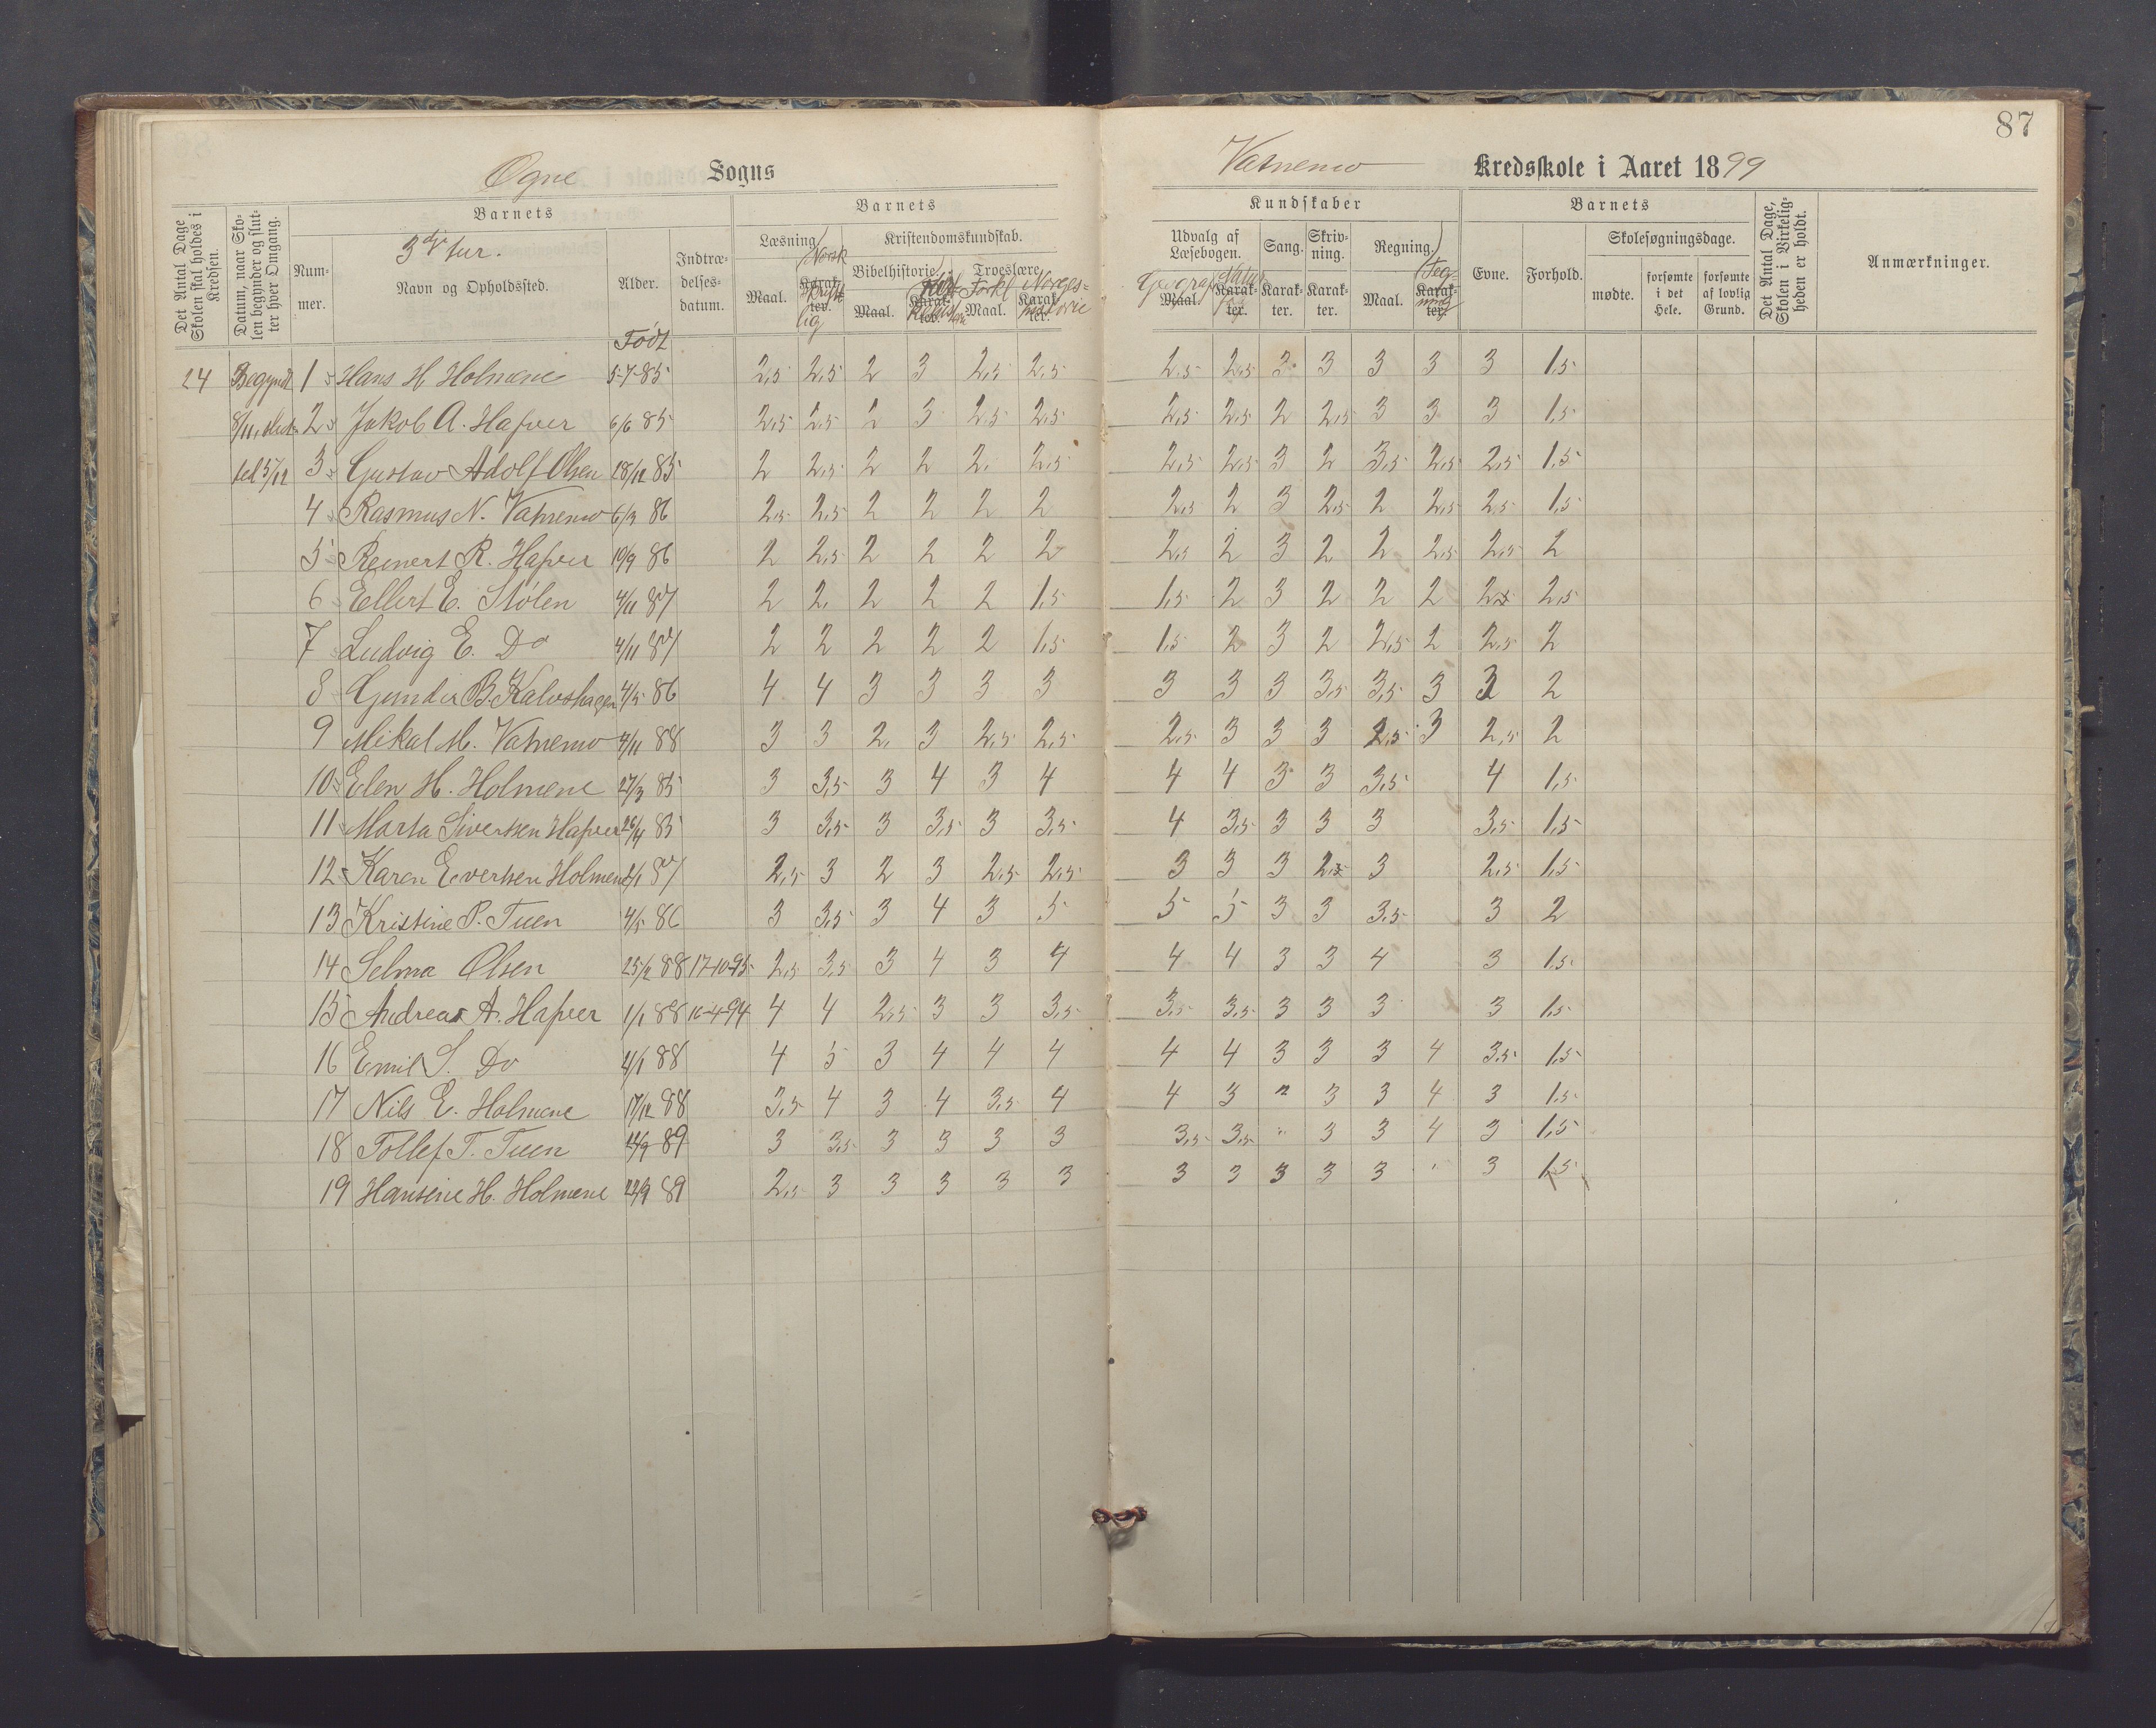 87
Ogne Sogns
Vatnemo Kredsskole i Aaret 1899
Det Antal Dage Skolen skal holdes i Kredsen.
Datum, naar Skolen begynder og slutter hver Omgang.
Barnets
Nummer.
3die tur.
Navn og Opholdssted.
Alder.
Født
Indtrædelsesdatum.
Barnets
Læsning
Maal.
Norsk
Karakter.
Kristendomskundskab.
Bibelhistorie
Maal.
Karakter.
Troeslære
Forkl
Maal.
Norgeshistorie
Karakter.
Kundskaber
Udvalg af Læsebogen.
Geograf
Maal.
Natur
Karakter.
Sang.
Karakter.
Skrivning.
Karakter.
Regning
Maal.
Tegning
Karakter.
Barnets
Evne.
Forhold.
Skolesøgningsdage.
mødte.
forsømte i det Hele.
forsømte af lovlig Grund.
Det Antal Dage, Skolen i Virkeligheden er holdt.
Anmærkninger.
24 Begyndt 1 Hans H Holmene 5-7-85 2,5 2,5 2 3 2,5 2,5 2,5 2,5 3 3 3 3 3 1,5
8/11, slut 2 Jakob A. Hafver 6/6 85 2,5 2,5 2 3 2,5 2,5 2,5 2,5 2 2,5 3 3 3 1,5
ted 5/12 3 Gustav Adolf Olsen 18/12 85 2 2,5 2 2 2, 2,5 2,5 2,5 3 2 3,5 2,5 2,5 1,5
4 Rasmus N. Vatnemo 6/3 86 2,5 2,5 2 2 2 2 2,5 2 3 2,5 2 2,5 2,5 1,5
5 Reinert R. Hafver 10/9 86 2 2,5 2 2 2 2 2,5 2 3 2 2 2,5 2,5 2
6 Ellert E. Stølen 4/11 87 2 2, 2 2 2 1,5 1,5 2 3 2 2 2 2,5 2,5
7 Ludvig E. Do 4/11 87 2 2 2 2 2 1,5 1,5 2 3 2 2,5 2 2,5 2
8 Gunder B. Kalvshagen 4/5 86 4 4 3 3 3 3 3 3 3 3,5 3,5 3 3 2
9 Mikal M. Vatnemo 4/11 88 3 3 2, 3 2,5 2,5 2,5 3 3 3 2,5 3 2,5 2
10 Elen H. Holmene 27/3 85 3 3,5 3 4 3 4 4 4 3 3 3,5 4 1,5
11 Marta Sivertsen Hafver 26/4 85 3 3,5 3 3,5 3 3,5 4 3,5 3 3 3 3,5 1,5
12 Karen Evertsen Holmene 2/1 87 2,5 3 2 3 2,5 2,5 3 3 3 2,5 3 2,5 1,5
13 Kristine P. Tuen 4/5 86 3 3,5 3 4 3 5 5 5 3 3 3,5 3 2
14 Selma Olsen 25/2 88 17-10-95 2,5 3,5 3 4 3 4 4 4 3 3 4 3 1,5
15 Andreas A. Hafver 1/1 88 16-4-94 4 4 2,5 3 3 3,5 3,5 3,5 3 3 3 3 1,5
16 Emil S. Do 4/1 88 4 5 3 4 4 4 4 4 3 3 3 4 3,5 1,5
17 Nils E. Holmene 17/12 88 3,5 4 3 4 3,5 4 4 3 " 3 3 4 3 1,5
18 Tollef T. Tuen 12/9 89 3 3,5 3 3 3 3 3,5 3,5 " 3 3 4 3 1,5
19 Hansine H. Holmene 22/9 89 2,5 3 3 3 3 3 3 3 3 3 3 " 3 1,5